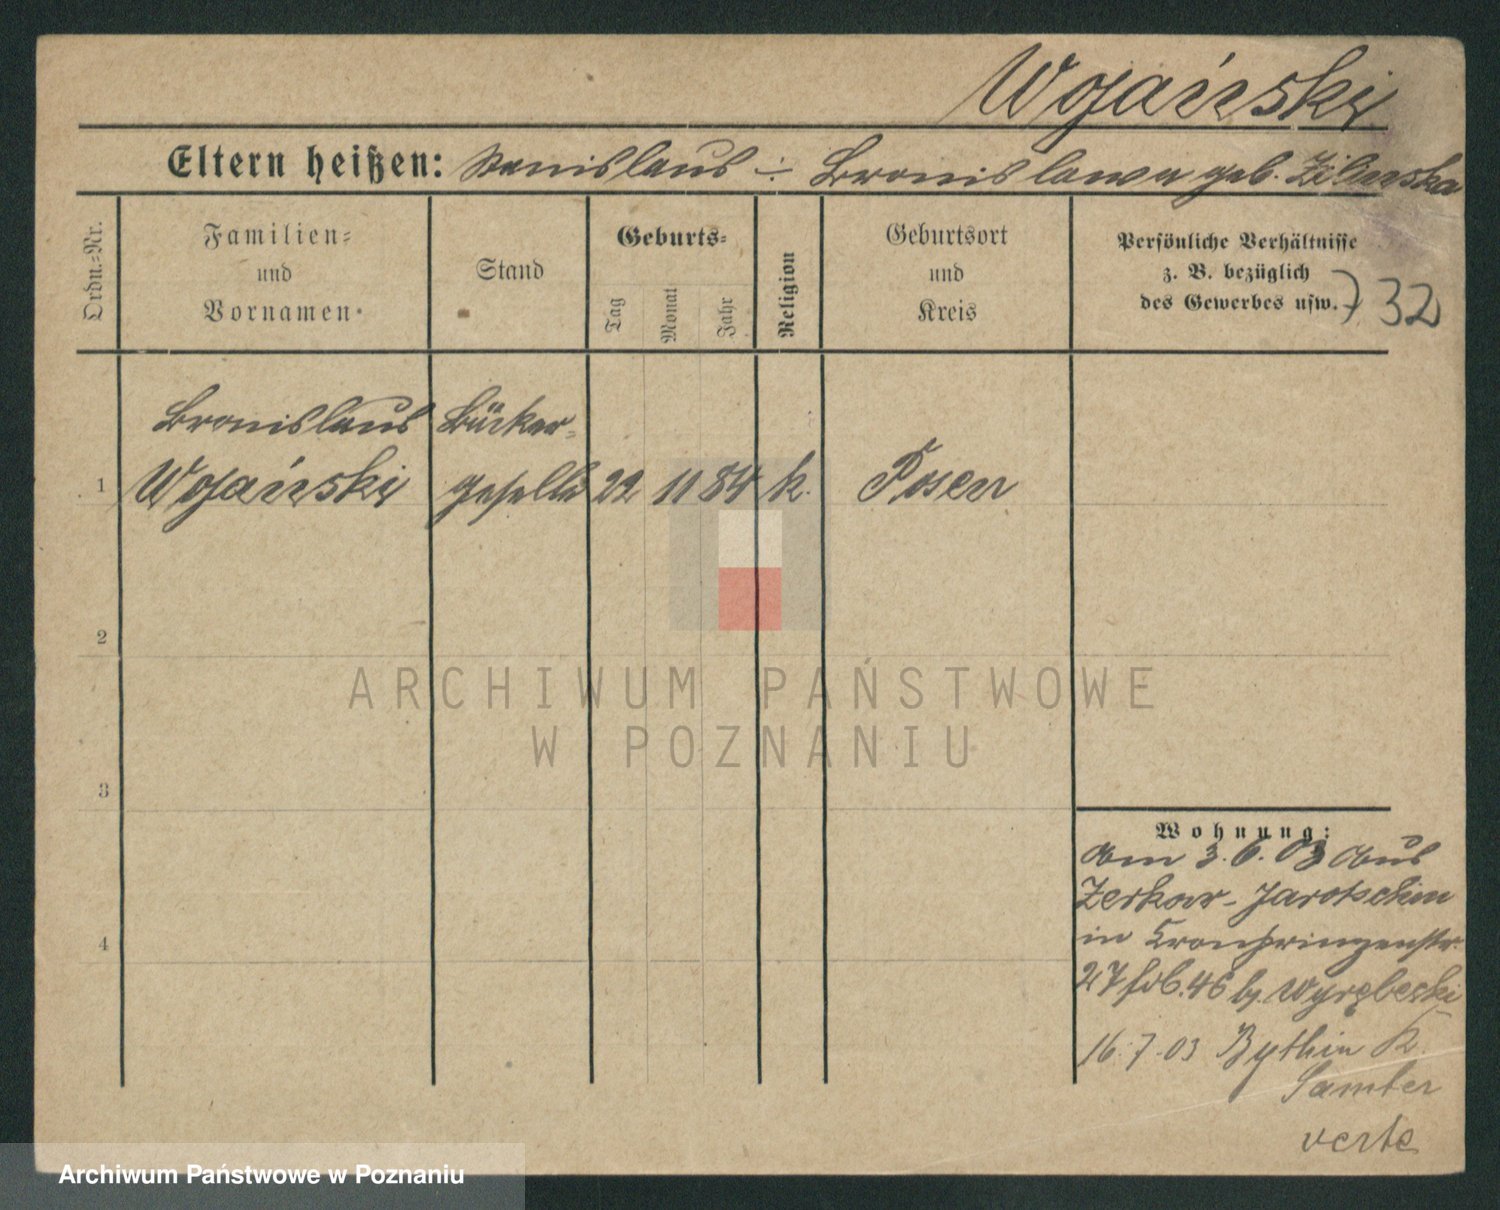 Wojański
Eltern heißen: Stanislaus ÷ Bronislawa geb.
Ordn.=Nr.
Familien=
und
Vornamen
Stand
Geburts=
Tag
Monat
Jahr
Religion
Geburtsort
und
Kreis
Persönliche Verhältnisse
z. B. bezüglich
des Gewerbes usw.
732
Bronislaus
Bäcker=
1
Wojański
geselle
22
11
84
k.
Posen
2
3
4
Wohnung:
Am 3.6.03 aus
Zerkow-Jarotschin
in Kronprinzenstr.
27 fdb. 46 b. Wyrębeski
16.7.03 Bythin K.
Samter
verte
ARCHIWUM PAŃSTWOWE
W POZNANIU
Archiwum Państwowe w Poznaniu